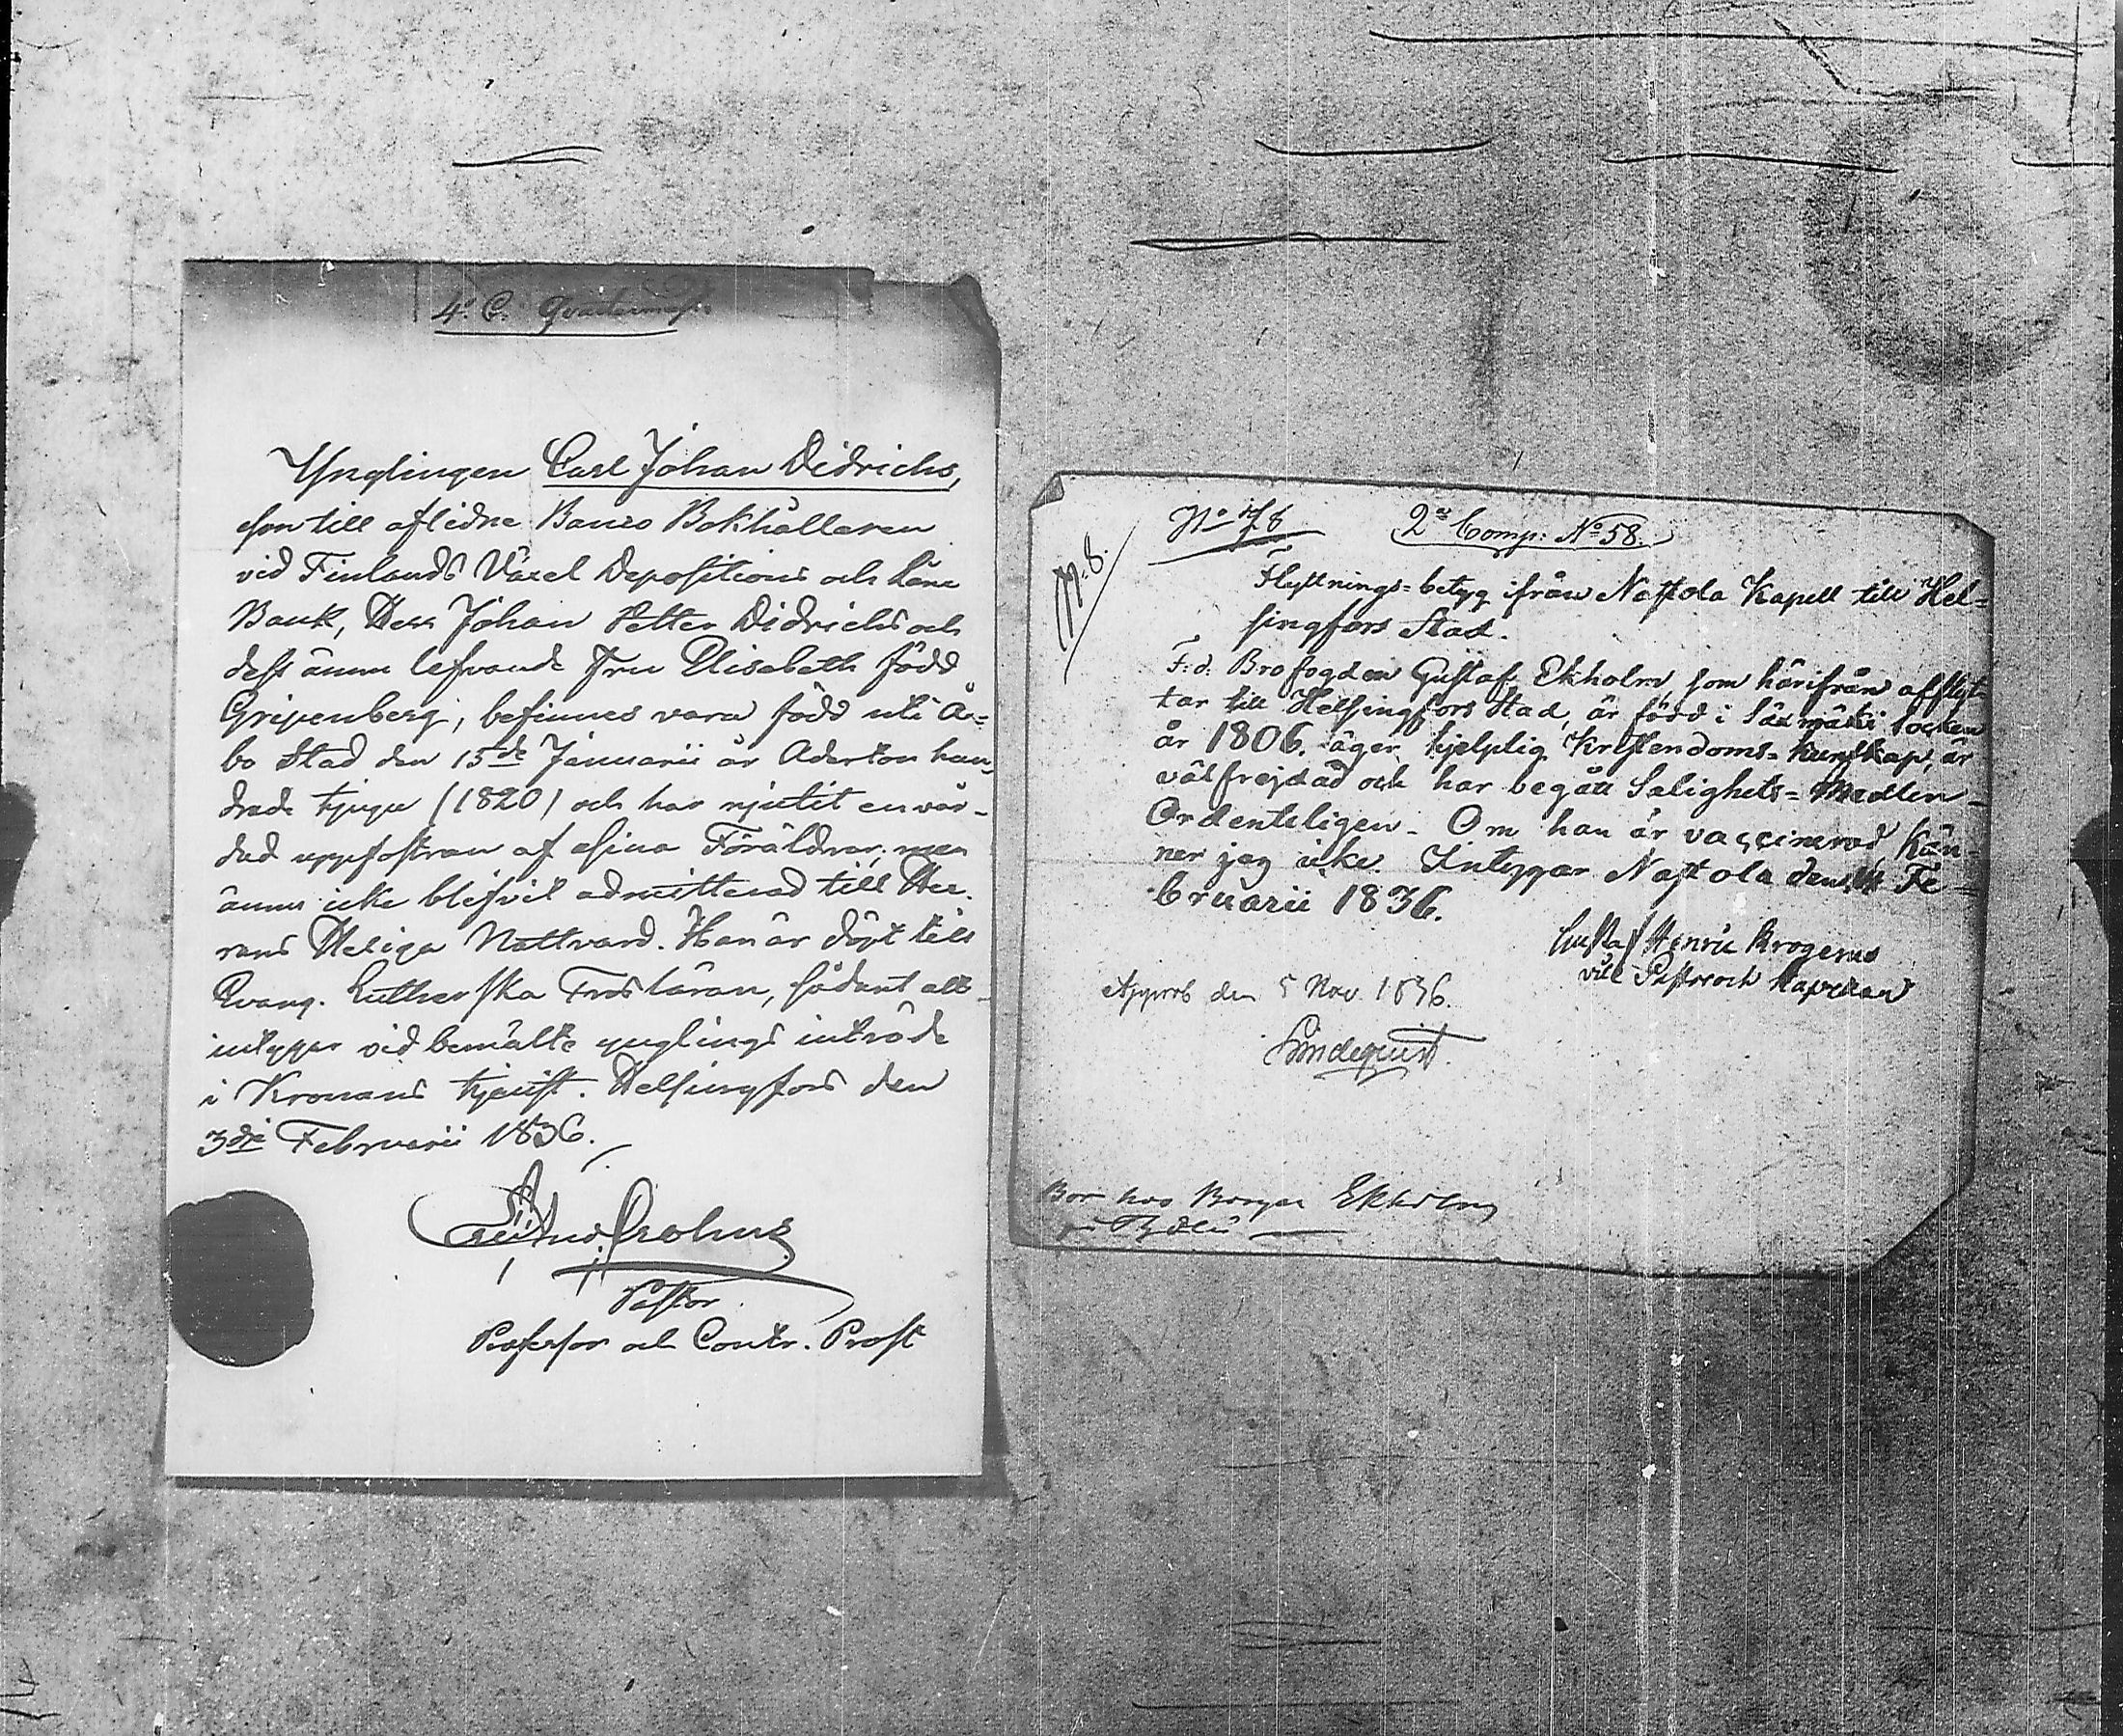 4. C.
Ynglingen Carl Johan Didrichs,
son till aflidne Banco Bokhållaren
vid Finlands Växel Depositions och Låne
Bank, Herr Johan Petter Didrichs och
dess ännu lefvande Fru Elisabeth född
Gripenberg, befinnes vara född uti Å=
bo Stad den 15de Januarii år Aderton hun-
drade tjugu (1820) och har njutit en vår-
dad uppfostran af sina Föräldrar, men
ännu icke blifvit admitterad till Her-
rans Heliga Nattvard. Han är döpt till
Evang. Lutherska Trosläran, sådant att-
intygar vid bemälte ynglings inträde
i Kronans tjenst. Helsingfors den
3dje Februarii 1836.
Crohns
Pastor
Professor och Contr. Prost
No 78
2a Comp: No 58.
N. 8.
Flyttnings=betyg ifrån Nastola Kapell till Hel=
singfors Stad.
F:d. Brofogden Gustaf Ekholm, som härifrån afflyt-
tar till Helsingfors Stad, är född i Säxmäki socken
år 1806. äger hjelplig Kristendoms=kunskap, är
välfrejdad och har begått Salighets=Medlen
Ordenteligen. Om han är vaccinerad, kän-
ner jag icke. Intygar Nastola den 14 Fe=
bruarii 1836.
Gustaf Henric Krogerus
vice Pastor och Kapellan
Approb den 5 Nov 1836.
Lindequist.
Bor hos Borgar Ekholm